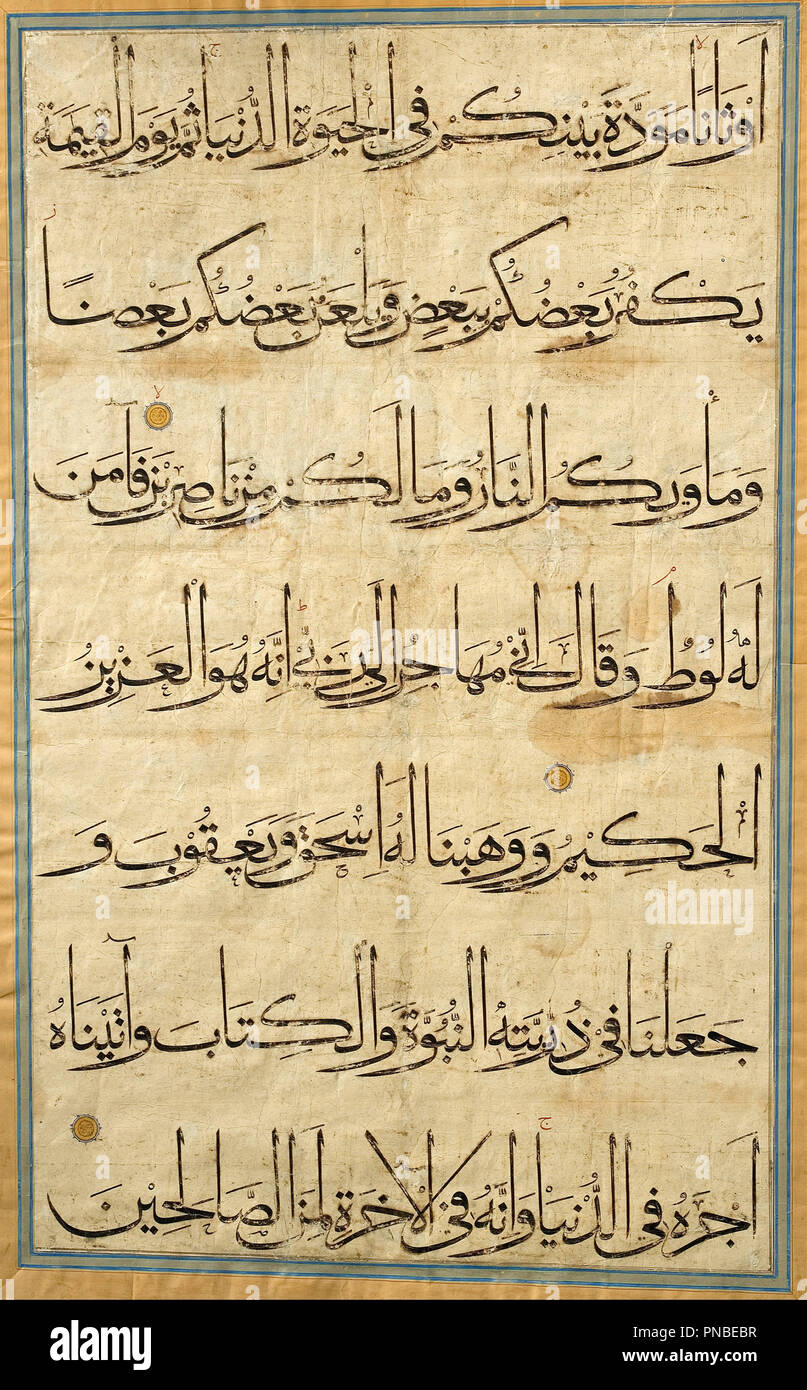 اَوْثَانًا مَوَدَّةَ بَيْنِكُمْ فِي الْحَيٰوةِ الدُّنْيَا ثُمَّ يَوْمَ الْقِيٰمَةِ
يَكْفُرُ بَعْضُكُمْ بِبَعْضٍ وَيَلْعَنُ بَعْضُكُمْ بَعْضًا
وَمَأْوٰىكُمُ النَّارُ وَمَا لَكُمْ مِنْ نَاصِرِيْنَ فَآمَنَ
لَهُ لُوْطٌ وَقَالَ اِنِّي مُهَاجِرٌ اِلٰى رَبِّي اِنَّهُ هُوَ الْعَزِيْزُ
الْحَكِيْمُ وَوَهَبْنَا لَهُ اِسْحٰقَ وَيَعْقُوْبَ وَ
جَعَلْنَا فِيْ ذُرِّيَّتِهِ النُّبُوَّةَ وَالْكِتَابَ وَآتَيْنَاهُ
اَجْرَهُ فِي الدُّنْيَا وَاِنَّهُ فِي الْاٰخِرَةِ لَمِنَ الصَّالِحِيْنَ
alamy
alamy stock photo
alamy
PNBEBR
www.alamy.com